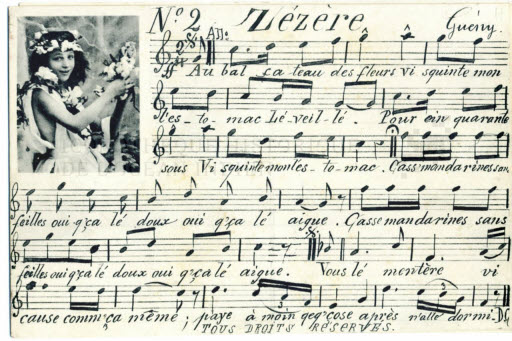 N° 2 Zézère Guény.
All:
ff Au bal, ça leau des fleurs vi squinte mon
l'es_to_mac Lé_veil_lé. Pour ein quarante
sous Vi squinte mont'es_to_mac. Cass'mandarines san
feilles oui q'ça lé doux oui q'ça lé aigue. Cassemandarines sans
feilles oui q'ça lé doux oui q'ça lé aigue. Vous lé montère vi
cause comm' ça même; paye à moin qeq'cose après n'alle dormi. D.C
TOUS DROITS RÉSERVÉS.